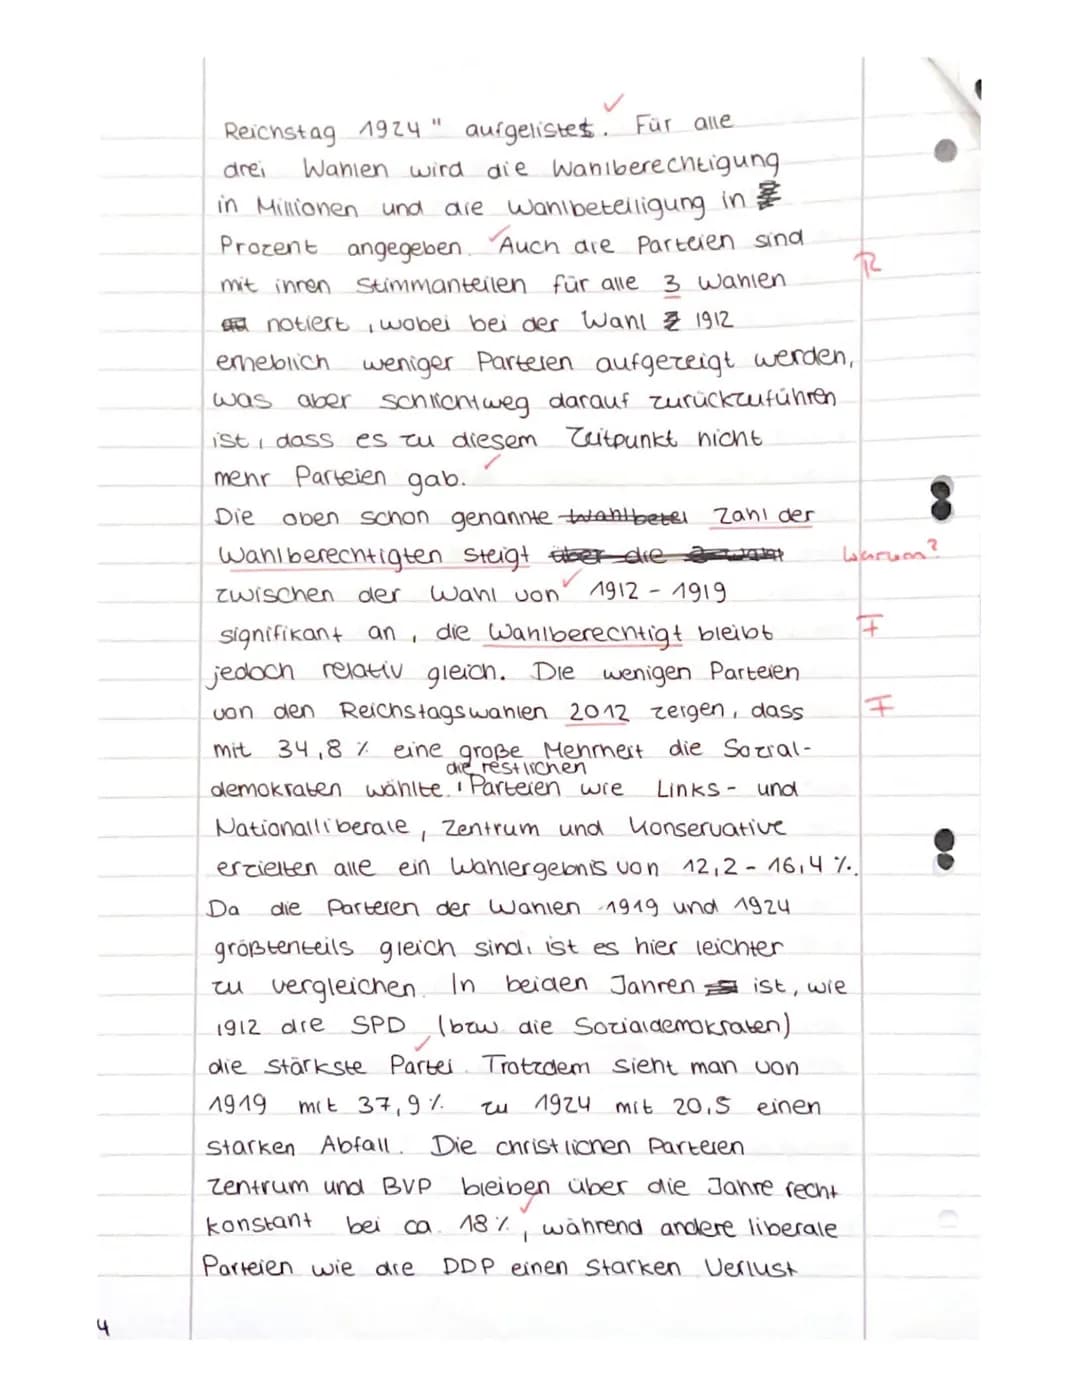 Reichstag 1924" aufgelistet. Für alle
drei Wahlen wird die Wahlberechtigung
in Millionen und die Wahlbeteiligung in
Prozent angegeben. Auch die Parteien sind
mit ihren Stimmanteilen für alle 3 Wahlen
R
notiert, wobei bei der Wahl 1912
erheblich weniger Parteien aufgezeigt werden,
was aber schlichtweg darauf zurückzuführen
ist, dass es zu diesem Zeitpunkt nicht
mehr Parteien gab.
Die oben schon genannte Wahlbetei Zahl der
Wahlberechtigten steigt über die
Warum?
zwischen der Wahl von 1912 - 1919
signifikant an, die Wahlberechtigt bleibt
F
jedoch relativ gleich. Die wenigen Parteien
von den Reichstagswahlen 2012 zeigen, dass
F
mit 34,8 % eine große Mehrheit die Sozial-
die restlichen
demokraten wählte. Parteien wie Links- und
Nationalliberale, Zentrum und Konservative
erzielten alle ein Wahlergebnis von 12,2 - 16,4 %.
Da die Parteien der Wahlen 1919 und 1924
größtenteils gleich sind, ist es hier leichter
zu vergleichen. In beiden Jahren ist, wie
1912 die SPD (bzw. die Sozialdemokraten)
die stärkste Partei. Trotzdem sieht man von
1919 mit 37,9 % zu 1924 mit 20,5 einen
starken Abfall. Die christlichen Parteien
Zentrum und BVP bleiben über die Jahre recht
konstant bei ca. 18 %, während andere liberale
Parteien wie die DDP einen starken Verlust
4